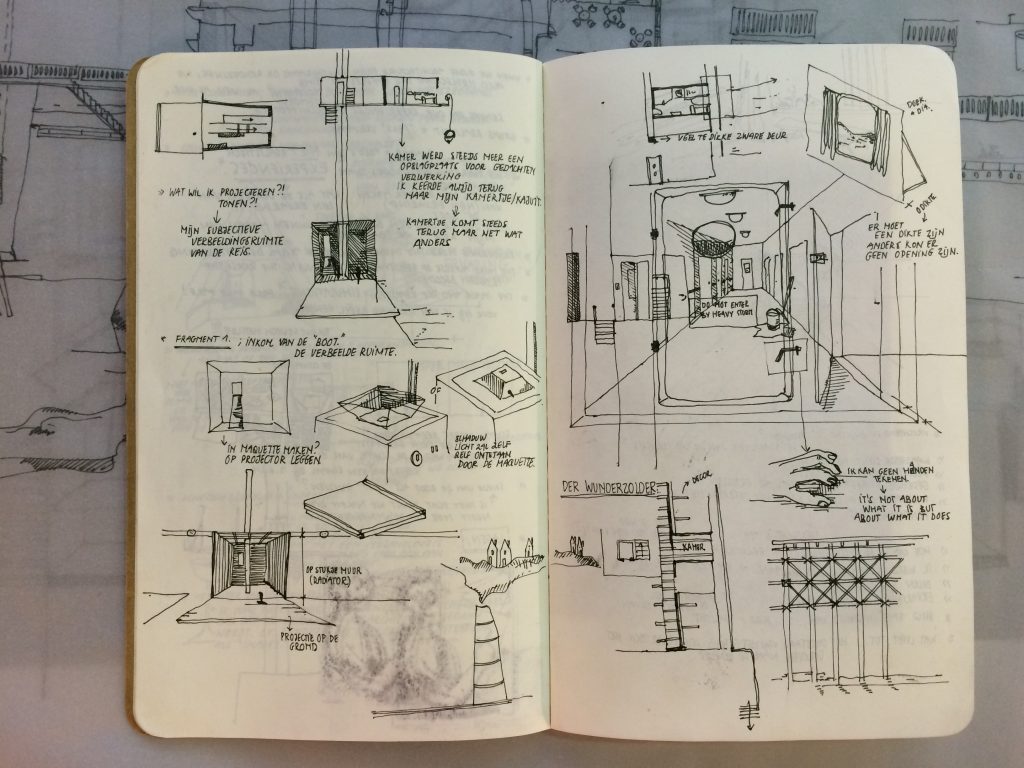 KAMER WERD STEEDS MEER EEN
OPSLAGPLAATS VOOR GEDACHTEN
VERWERKING
IK KEERDE ALTIJD TERUG
NAAR MIJN KAMERTJE/KAJUIT.
KAMERTJE KOMT STEEDS
TERUG MAAR NET WAT
ANDERS
> WAT WIL IK PROJECTEREN?!
TONEN?!
MIJN SUBJECTIEVE
VERBEELDINGSRUIMTE
VAN DE REIS.
* FRAGMENT 1. ; INKOM VAN DE "BOOT."
DE VERBEELDE RUIMTE.
OF
IN MAQUETTE MAKEN?
OP PROJECTOR LEGGEN.
SCHADUW
LICHT ZAL ZELF
ONTSTAAN
DOOR DE MAQUETTE.
OP STUKJE MUUR
(RADIATOR)
PROJECTIE OP DE
GROND
VEEL TE DIKKE ZWARE DEUR
DOEK
DIKTE
ER MOET
EEN DIKTE ZIJN
ANDERS KON ER
GEEN OPENING ZIJN.
DO NOT ENTER
BY HEAVY STORM
IK KAN GEEN HANDEN
TEKENEN.
IT'S NOT ABOUT
WHAT IT IS BUT
ABOUT WHAT IT DOES
DER WUNDERZOLDER:
DECOR
KAMER